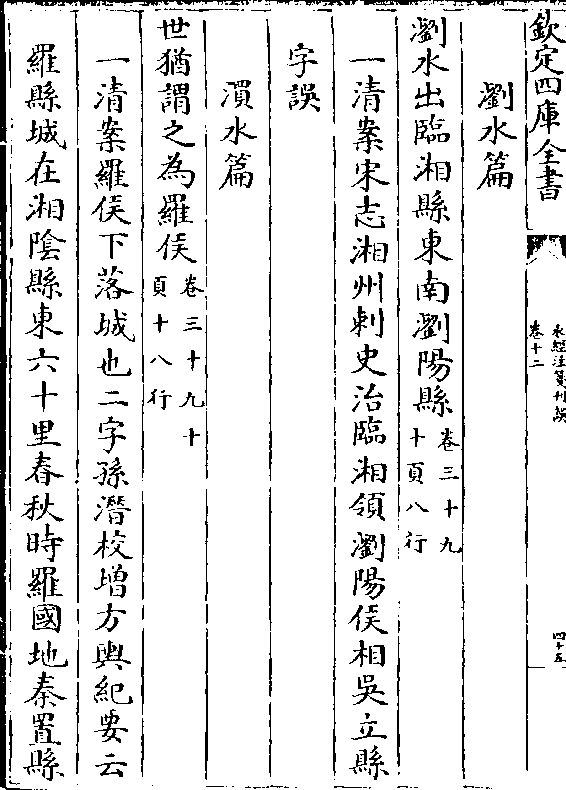 欽定四庫全書
水經注箋刊誤
卷十二
四十五
瀏水篇
瀏水出臨湘縣東南瀏陽縣卷三十九
十頁八行
一清案宋志湘州刺史治臨湘領瀏陽侯相吳立縣
字誤
湨水篇
世猶謂之為羅侯卷三十九十
頁十八行
一清案羅侯下落城也二字孫潛校增方輿紀要云
羅縣城在湘陰縣東六十里春秋時羅國地秦置縣